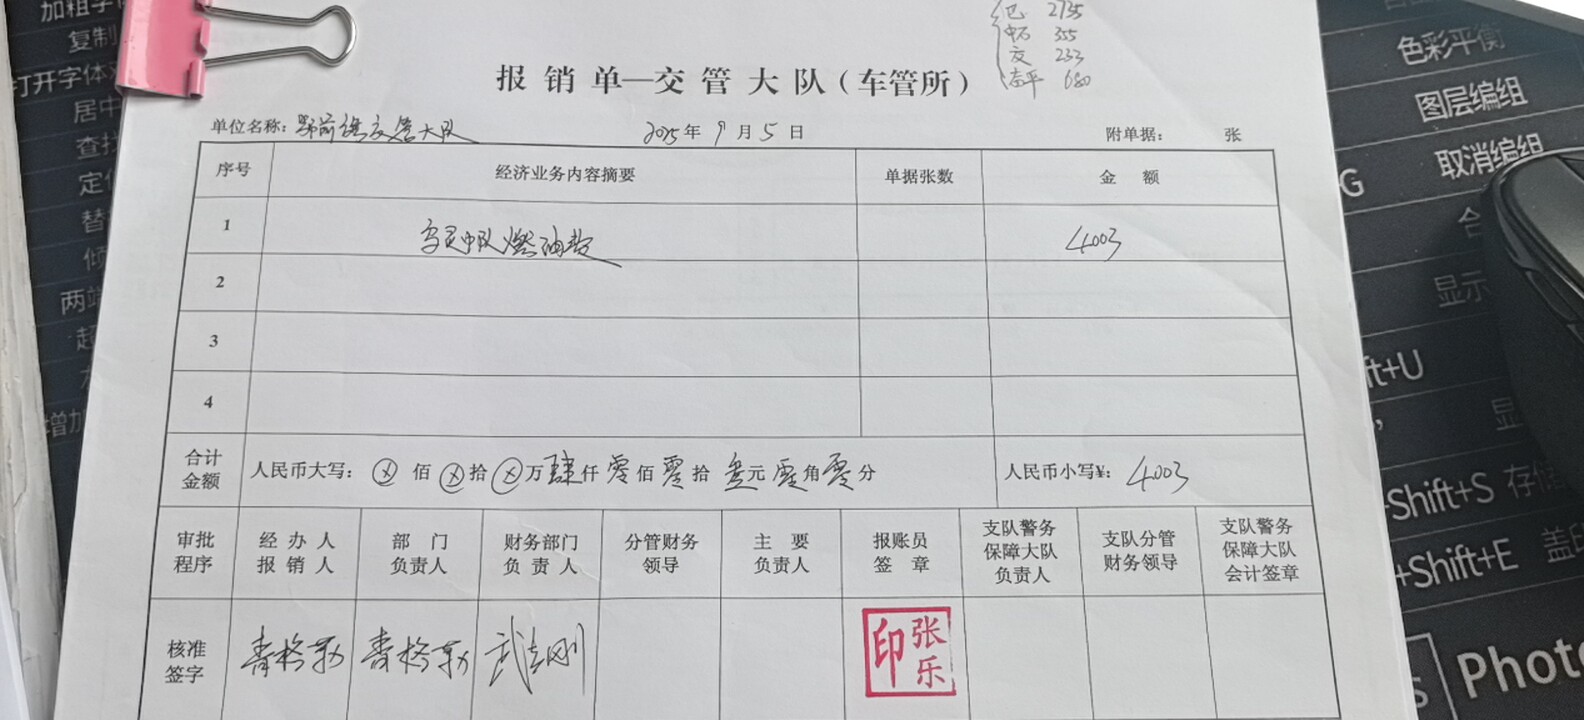 2735
355
233
680
报销单—交管大队(车管所)
单位名称:鄂前旗交管大队 2025年9月5日 附单据: 张
序号 经济业务内容摘要 单据张数 金额
1 中队燃油费 4003
2
3
4
合计金额 人民币大写:ⓧ佰ⓧ拾ⓧ万肆仟零佰零拾叁元零角零分 人民币小写¥:4003
审批程序 经办人报销人 部门负责人 财务部门负责人 分管财务领导 主要负责人 报账员签章 支队警务保障大队负责人 支队分管财务领导 支队警务保障大队会计签章
核准签字 青格勒 青格勒 武志刚 张乐印
复制
打开字体
居中
查找
替
两端
增加
色彩平衡
图层编组
取消编组
G
合
显示
ft+U
Shift+S 存储
+Shift+E 盖印
s
Photo